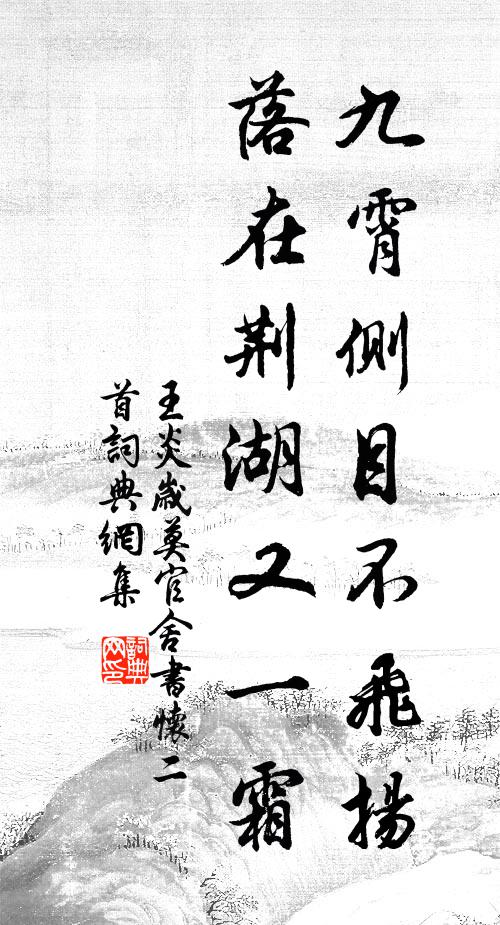 九霄側目不飛揚
落在荆湖又一霜
王炎歲莫官舍書懷二
首詞典網集
詞典网印